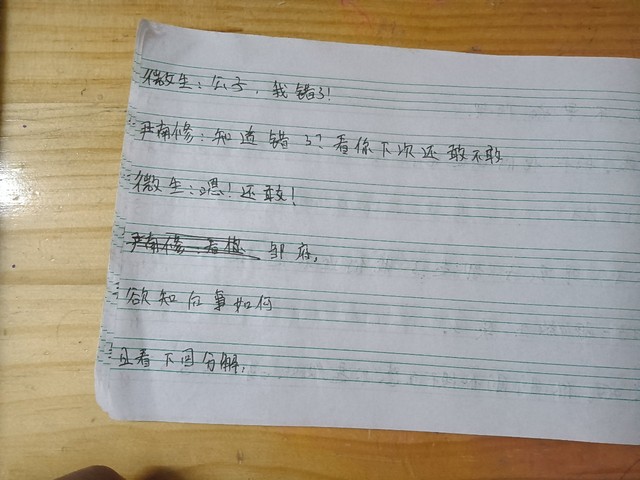 微生：公子，我错了！
尹南修：知道错了？看你下次还敢不敢
微生：嗯！还敢！
尹南修：看你 卸府，
欲知后事如何
且看下回分解，